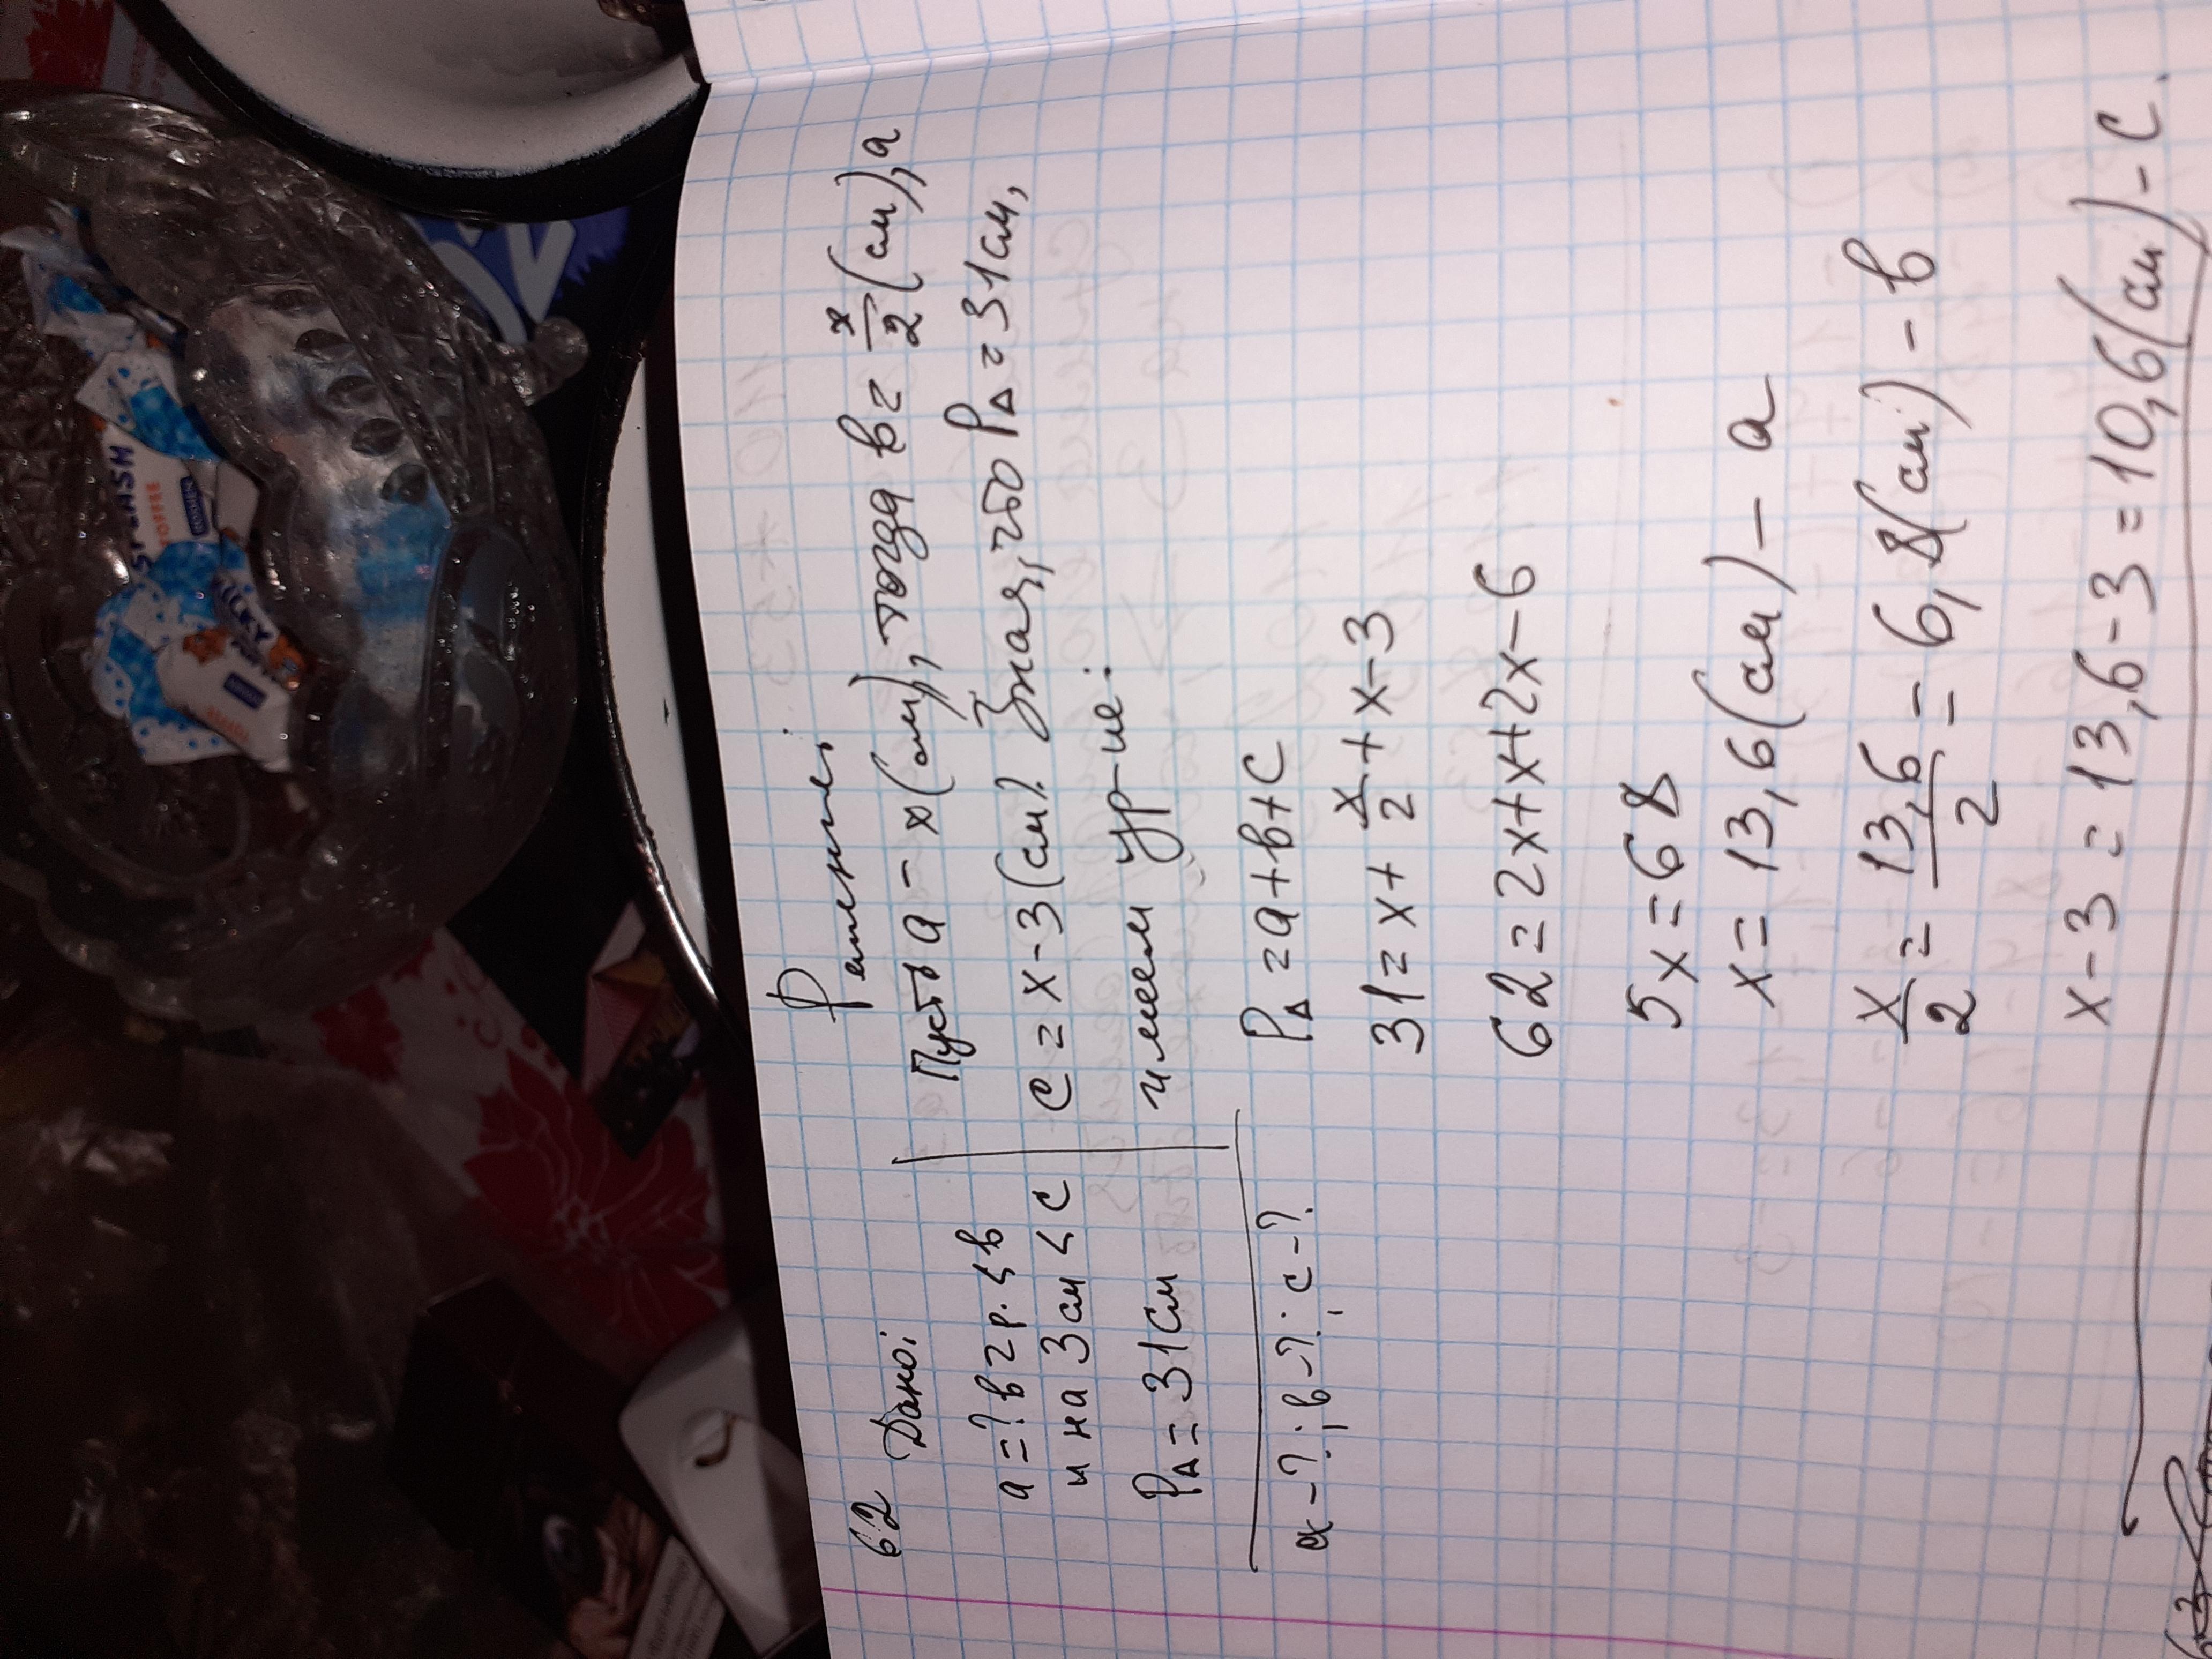 62 Дано:
a = ? в 2 р. < в
и на 3 см < с
P∆ = 31 см
a - ?; в - ?; с - ?
Решение:
Пусть a - x (см), тогд в = x/2 (см), а
с = x - 3 (см). Зная, что P∆ = 31 см,
имеем ур-ие:
P∆ = a + в + с
31 = x + x/2 + x - 3
62 = 2x + x + 2x - 6
5x = 68
x = 13,6 (см) - a
x/2 = 13,6/2 = 6,8 (см) - в
x - 3 = 13,6 - 3 = 10,6 (см) - с.
SPLASH
TOFFEE
ROSHEN
MILKY